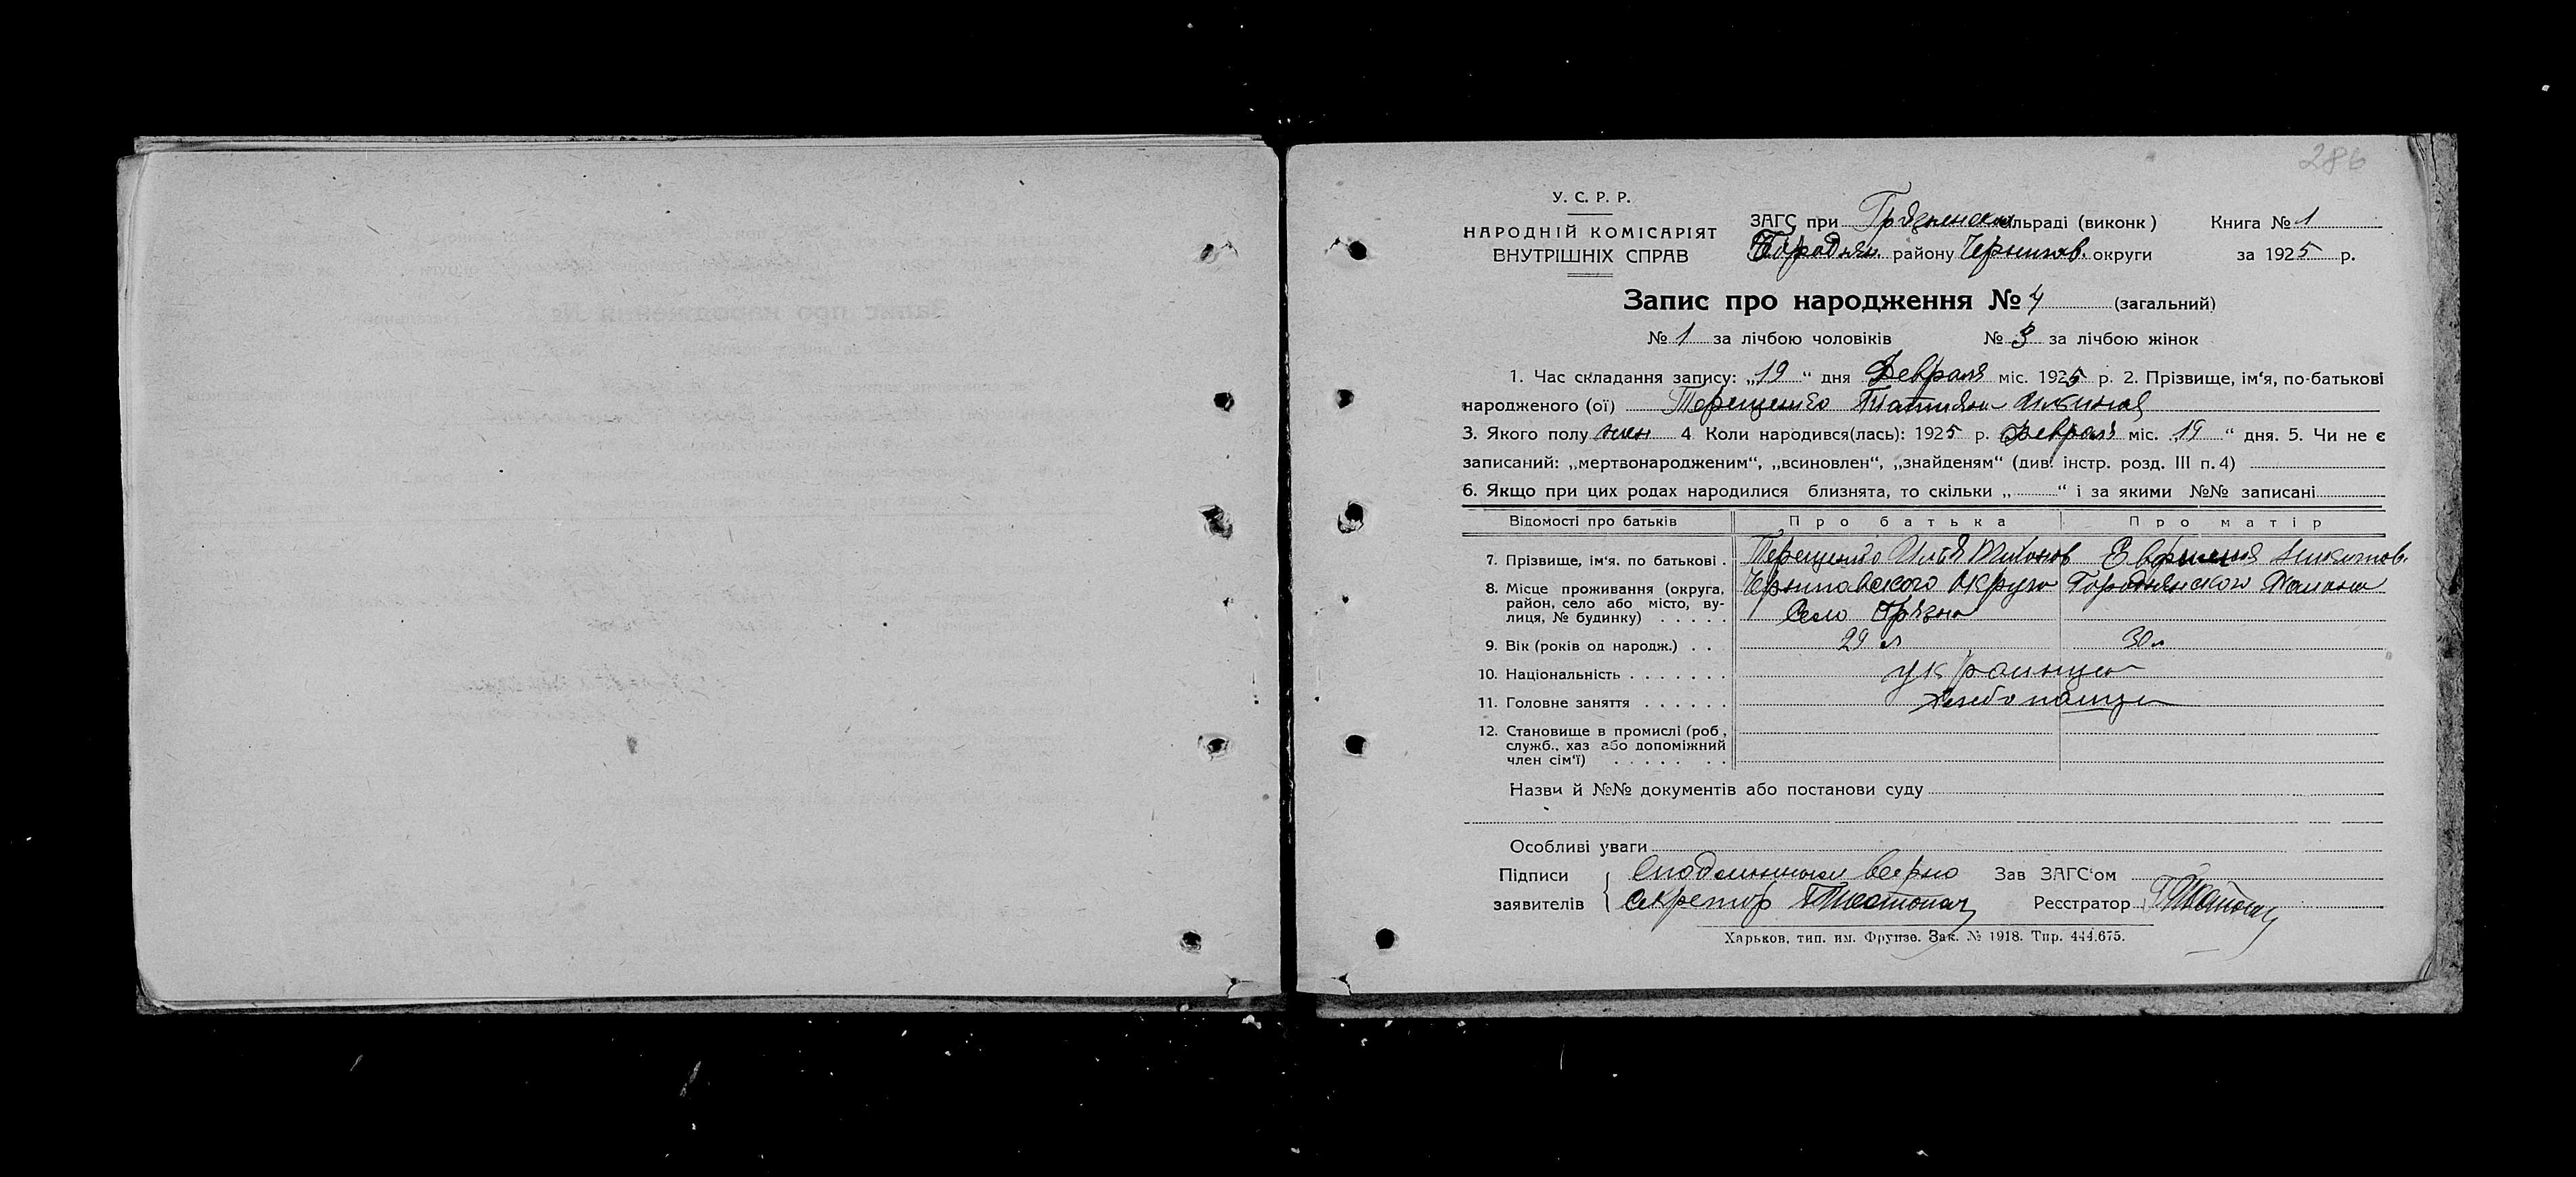 286
У. С. Р. Р.
НАРОДНІЙ КОМІСАРІЯТ
ВНУТРІШНІХ СПРАВ
ЗАГС при Грязненском сільраді (виконк) Книга № 1
Городнян. району Чернигов. округи за 1925 р.
Запис про народження № 4 (загальний)
№ 1 за лічбою чоловіків № 3 за лічбою жінок
1. Час складання запису: „19" дня Февраля міс. 1925 р. 2. Прізвище, ім'я, по-батькові
народженого (ої) Терещенко Татияна Илинная
3. Якого полу жен 4 Коли народився(лась): 1925 р. Февраля міс. 19 " дня. 5. Чи не є
записаний: „мертвонародженим", „всиновлен", „знайденям" (див. інстр. розд. III п. 4)
6. Якщо при цих родах народилися близнята, то скільки „ " і за якими №№ записані
Відомості про батьків Про батька Про матір
7. Прізвище, ім'я. по батькові . Терещенко Илья Тихонов Никитов.
8. Місце проживання (округа, Черниговского Округа Городнянского Района
район, село або місто, ву- Село Грязна
лиця, № будинку) . . . . .
9. Вік (років од народж.) . . 29 л 30 л
10. Національність . . . . . . . украинцы
11. Головне заняття . . . . . . хлебопашцы
12. Становище в промислі (роб,
служб., хаз або допоміжний
член сім'ї) . . . . . . .
Назви й №№ документів або постанови суду
Особливі уваги
Підписи Сподлинным верно Зав ЗАГС'ом
заявителів Секретар Реєстратор
Харьков, тип. им. Фрунзе. Зак. № 1918. Тир. 444.675.